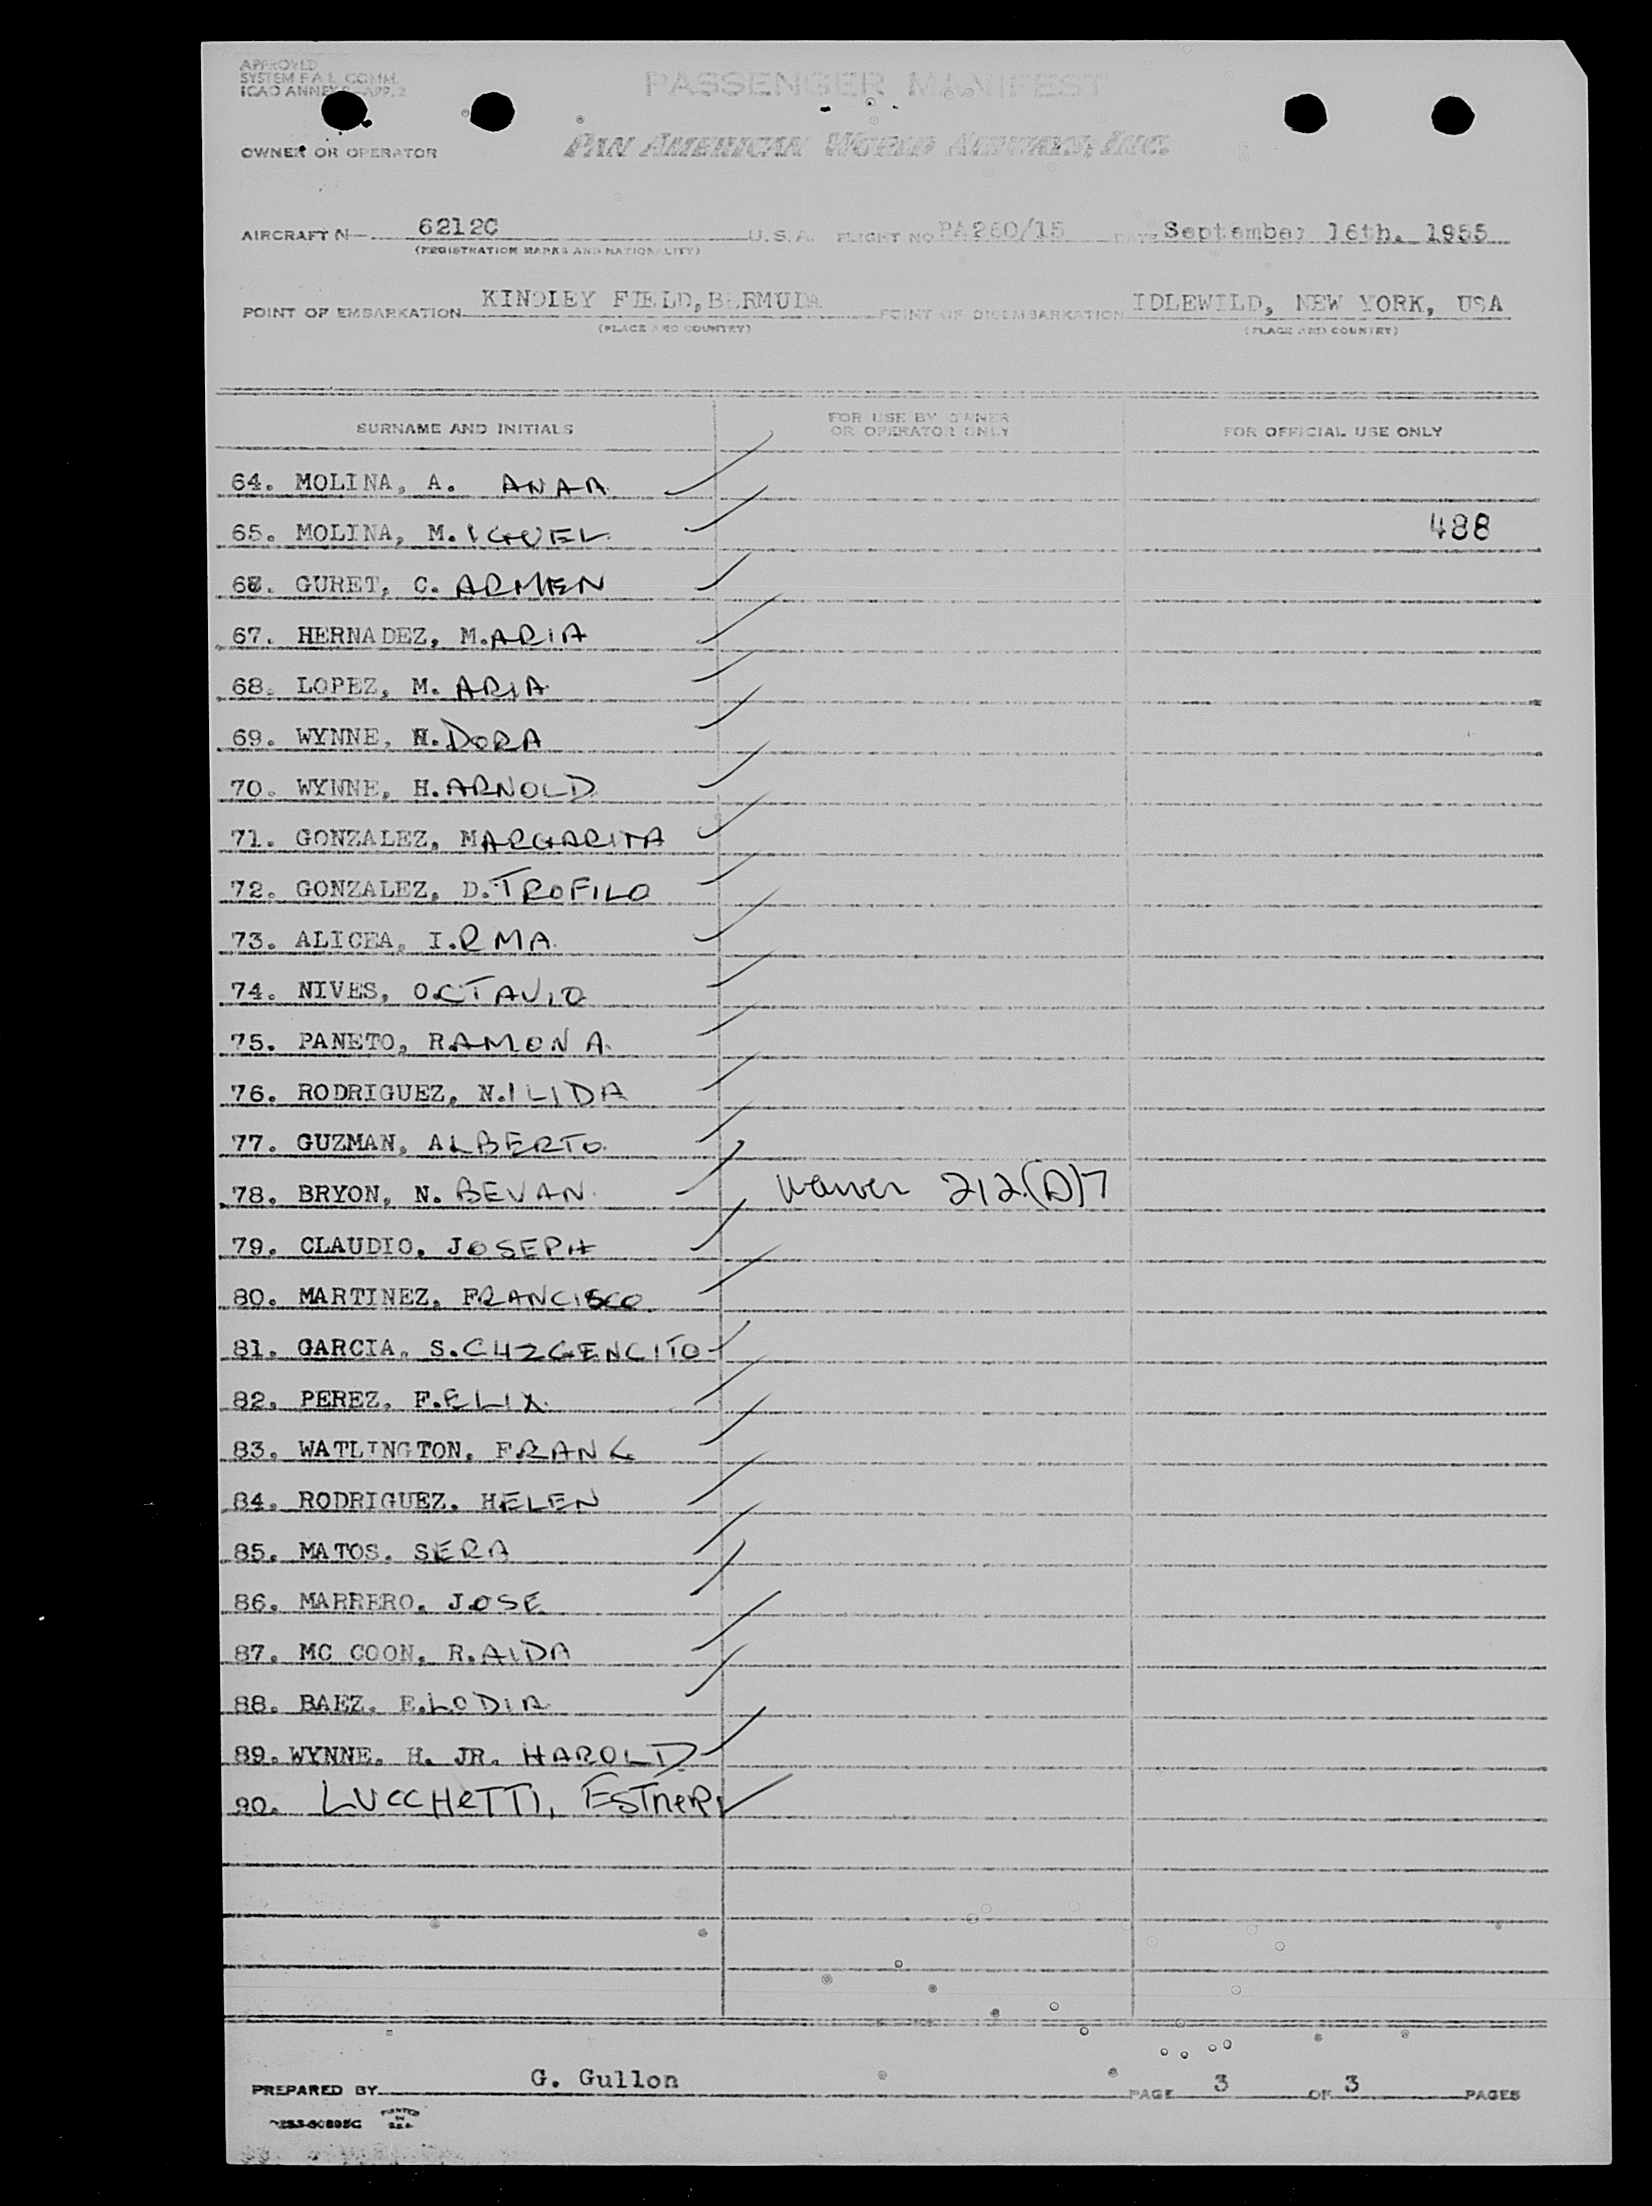 APPROVED
SYSTEM F A L COMM.
ICAO ANNEX 9-APP. 2
PASSENGER MANIFEST
OWNER OR OPERATOR
PAN AMERICAN WORLD AIRWAYS, INC.
AIRCRAFT N- 6212C U. S. A. FLIGHT NO PA260/15 DATE September 16th. 1955
(REGISTRATION MARKS AND NATIONALITY)
POINT OF EMBARKATION KINDLEY FIELD, BERMUDA POINT OF DISEMBARKATION IDLEWILD, NEW YORK, USA
(PLACE AND COUNTRY) (PLACE AND COUNTRY)
SURNAME AND INITIALS FOR USE BY OWNER OR OPERATOR ONLY FOR OFFICIAL USE ONLY
64. MOLINA, A. ANA A.
65. MOLINA, M. IGUEL 488
66. GURET, C. ARMEN
67. HERNADEZ, M. ARIA
68. LOPEZ, M. ARIA
69. WYNNE, H. DORA
70. WYNNE, H. ARNOLD
71. GONZALEZ, MARGARITA
72. GONZALEZ, D. TROFILO
73. ALICEA, I. RMA
74. NIVES, O. CTAVIO
75. PANETO, RAMON A.
76. RODRIGUEZ, N. ILIDA
77. GUZMAN, ALBERTO
78. BRYON, N. BEVAN Waiver 212.(D)7
79. CLAUDIO, JOSEPH
80. MARTINEZ, FRANCISCO
81. GARCIA, S.
82. PEREZ, F. ELIX
83. WATLINGTON, FRANK
84. RODRIGUEZ, HELEN
85. MATOS, SERA
86. MARRERO, JOSE
87. MC COON, R. AIDA
88. BAEZ, E. LODIA
89. WYNNE, H. JR. HAROLD
90. LUCCHETTI, ESTHER
PREPARED BY G. Gullon PAGE 3 OF 3 PAGES
PRINTED
IN
U.S.A.